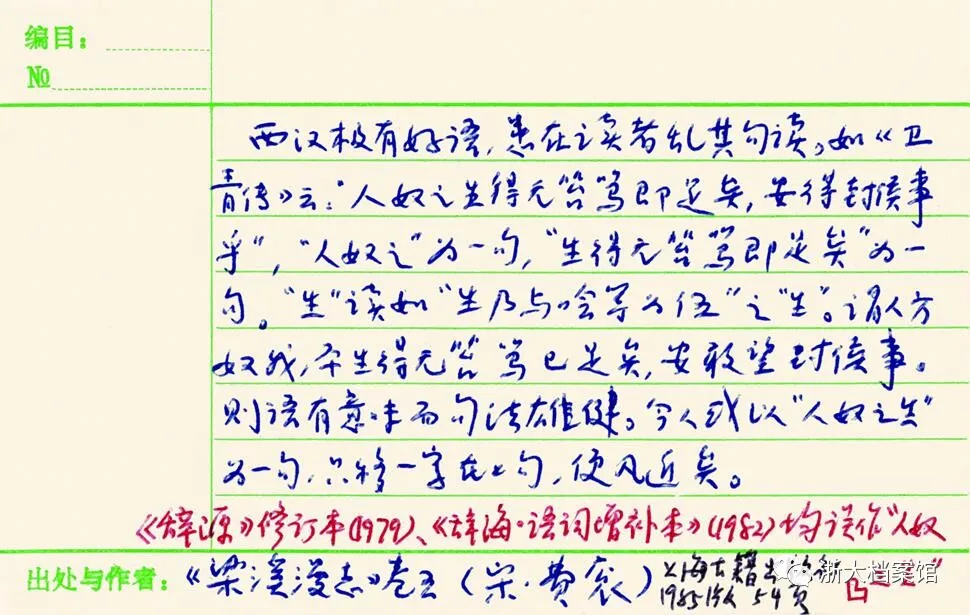 编目：
№
西汉极有好语，患在读者乱其句读。如《卫
青传》云："人奴之生得无笞骂即足矣，安得封侯事
乎"，"人奴之"为一句，"生得无笞骂即足矣"为一
句。"生"读如"生乃与哙等为伍"之"生"。谓人方
奴我，平生得无笞骂已足矣，安敢望封侯事。
则语有意味而句法雄健。今人或以"人奴之生"
为一句，只移一字在上句，便凡近矣。
《辞源》修订本(1979)、《辞海·语词增补本》(1982)均误作"人奴
出处与作者：《梁溪漫志》卷五（宋·费衮）上海古籍出
1985版 54页
浙大档案馆